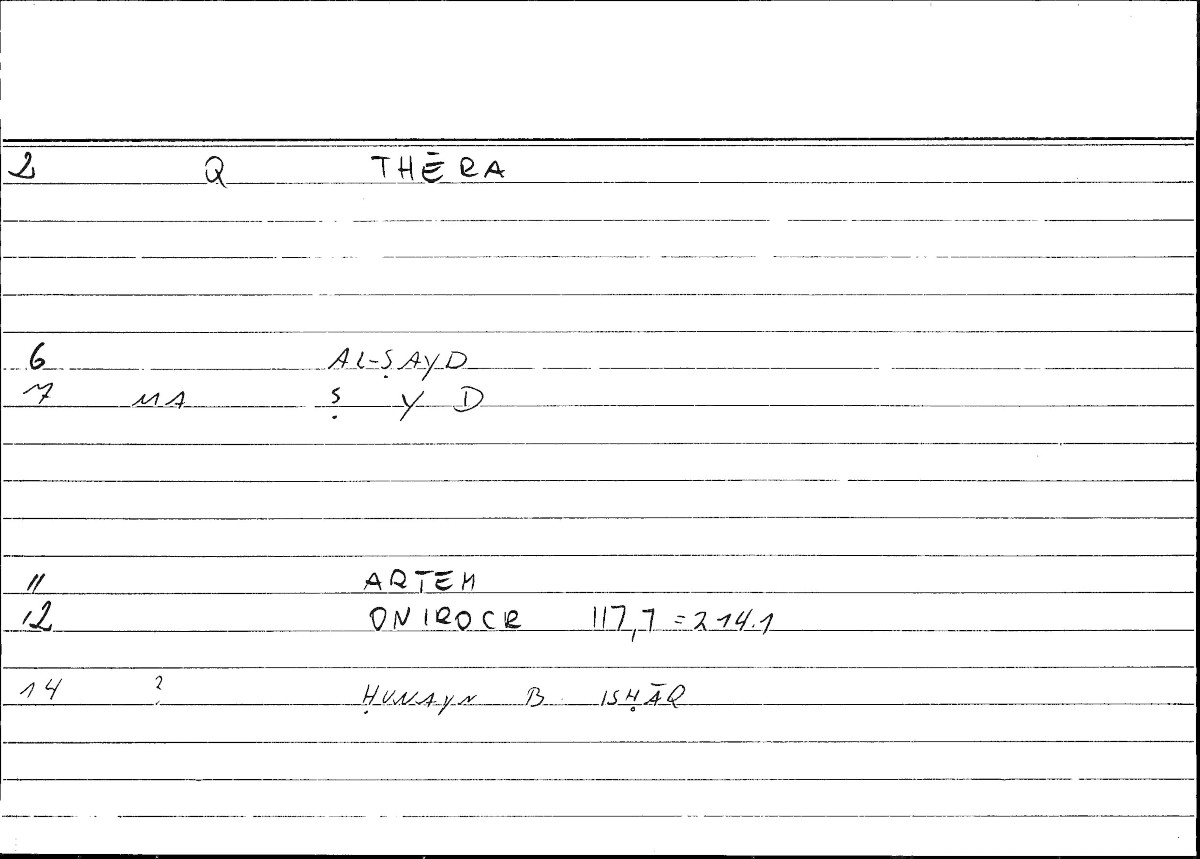 2 Q THĒRA
6 AL-ṢAYD
7 MA Ṣ Y D
11 ARTEM
12 ONIROCR 117,7 = 214.1
14 ? ḤUNAYN B ISḤĀQ